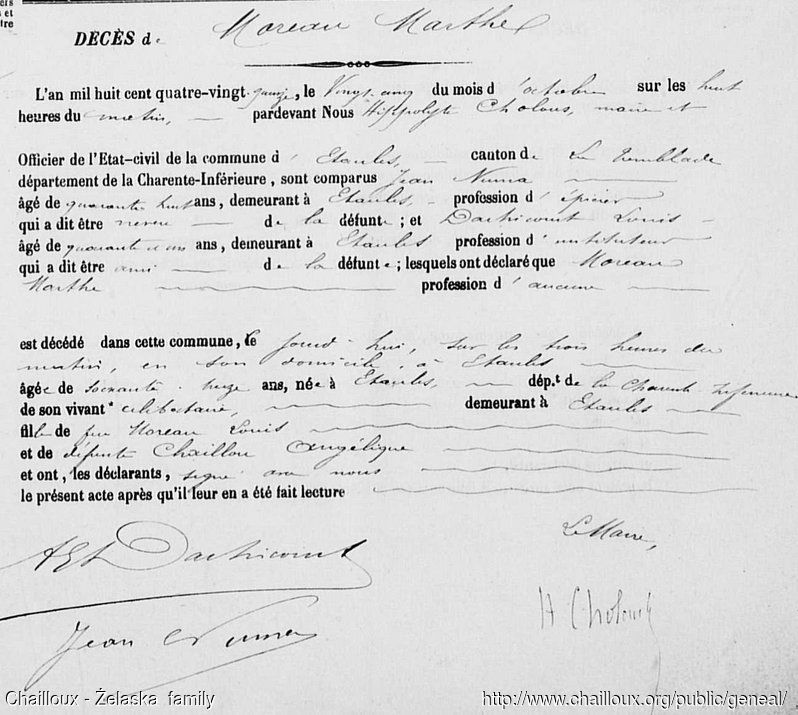 s et
tre
DÉCÈS de Moreau Marthe
L'an mil huit cent quatre-vingt-quinze, le Vingt cinq du mois d'octobre sur les huit
heures du matin, pardevant Nous Hippolyte Cholous, maire et
Officier de l'Etat-civil de la commune d'Etaules, canton de La Tremblade
département de la Charente-Inférieure, sont comparus Jean Numa
âgé de quarante huit ans, demeurant à Etaules, profession d'épicier
qui a dit être neveu de la défunte; et Dachicourt Louis
âgé de quarante ans, demeurant à Etaules profession d'instituteur
qui a dit être ami de la défunte; lesquels ont déclaré que Moreau
Marthe profession d'aucune
est décédé dans cette commune, le jourd'hui, sur les trois heures du
matin, en son domicile, à Etaules
âgée de soixante ans, née à Etaules, dép.t de la Charente Inférieure
de son vivant célibataire, demeurant à Etaules
fille de feu Moreau Louis
et de défunte Chaillou Angélique
et ont, les déclarants, signé avec nous
le présent acte après qu'il leur en a été fait lecture
Le Maire,
Dachicourt
H Cholous
Jean Numa
Chailloux - Żelaska family
http://www.chailloux.org/public/geneal/